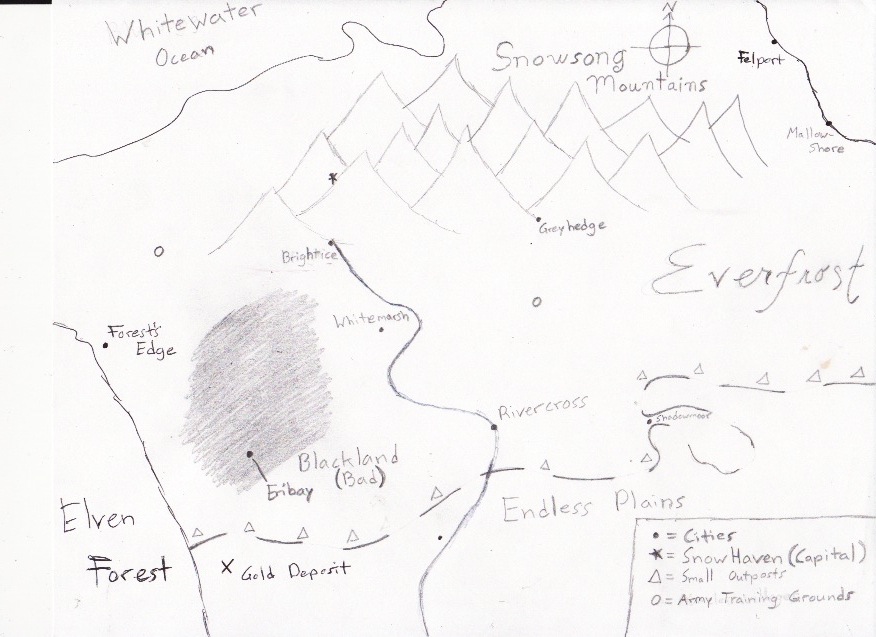 Whitewater
Ocean
N
Snowsong
Mountains
Felport
Mallow-
Shore
Greyhedge
Brightice
Everfrost
Forest's
Edge
Whitemarsh
Rivercross
Shadowmoor
Blackland
(Bad)
Eribay
Endless Plains
Elven
Forest
X Gold Deposit
• = Cities
* = SnowHaven (Capital)
△ = Small Outposts
O = Army Training Grounds